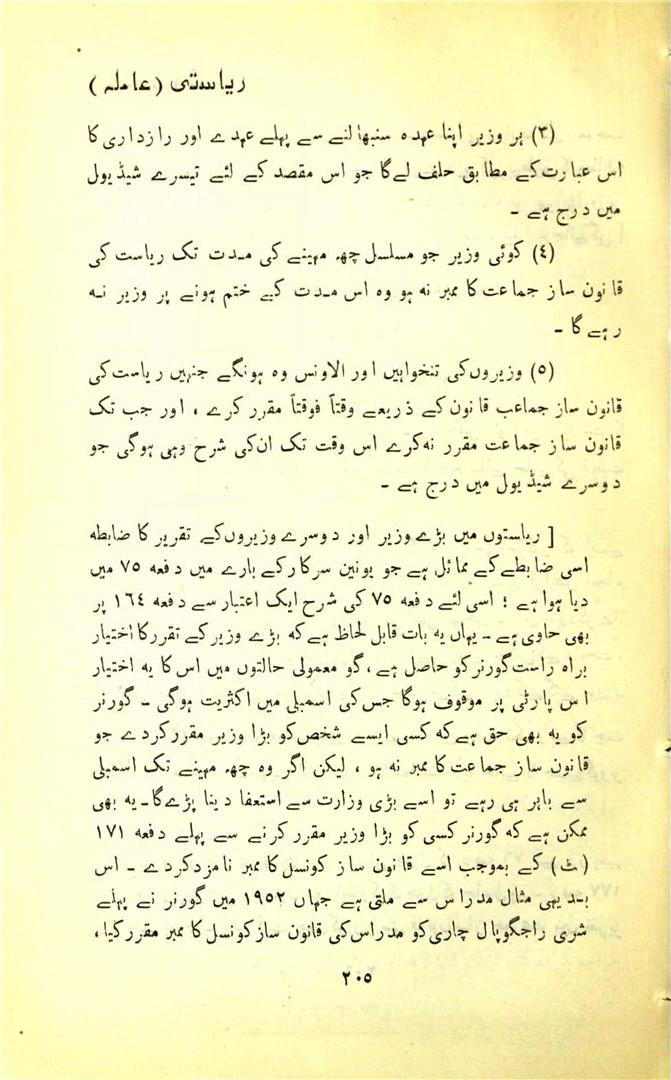 ریاستی (عاملہ)
(۳) ہر وزیر اپنا عہدہ سنبھالنے سے پہلے عہدے اور رازداری کا
اس عبارت کے مطابق حلف لے گا جو اس مقصد کے لئے تیسرے شیڈیول
میں درج ہے ۔
(٤) کوئی وزیر جو مسلسل چھ مہینے کی مدت تک ریاست کی
قانون ساز جماعت کا ممبر نہ ہو وہ اس مدت کے ختم ہونے پر وزیر نہ
رہے گا ۔
(۵) وزیروں کی تنخواہیں اور الاونس وہ ہونگے جنہیں ریاست کی
قانون ساز جماعب قانون کے ذریعے وقتاً فوقتاً مقرر کرے ، اور جب تک
قانون ساز جماعت مقرر نہ کرے اس وقت تک ان کی شرح وہی ہوگی جو
دوسرے شیڈیول میں درج ہے ۔
[ ریاستوں میں بڑے وزیر اور دوسرے وزیروں کے تقریر کا ضابطہ
اسی ضابطے کے مماثل ہے جو یونین سرکار کے بارے میں دفعہ ۷۵ میں
دیا ہوا ہے ؛ اسی لئے دفعہ ۷۵ کی شرح ایک اعتبار سے دفعہ ۱٦٤ پر
بھی حاوی ہے ۔ یہاں یہ بات قابل لحاظ ہے کہ بڑے وزیر کے تقرر کا اختیار
براہ راست گورنر کو حاصل ہے ، گو معمولی حالتوں میں اس کا یہ اختیار
اس پارٹی پر موقوف ہوگا جس کی اسمبلی میں اکثریت ہوگی ۔ گورنر
کو یہ بھی حق ہے کہ کسی ایسے شخص کو بڑا وزیر مقرر کردے جو
قانون ساز جماعت کا ممبر نہ ہو ، لیکن اگر وہ چھ مہینے تک اسمبلی
سے باہر ہی رہے تو اسے بڑی وزارت سے استعفا دینا پڑے گا ۔ یہ بھی
ممکن ہے کہ گورنر کسی کو بڑا وزیر مقرر کرنے سے پہلے دفعہ ۱۷۱
(ث) کے بموجب اسے قانون ساز کونسل کا ممبر نامزد کردے ۔ اس
بدیہی مثال مدراس سے ملتی ہے جہاں ۱۹۵۲ میں گورنر نے پہلے
شری راجگوپال چاری کو مدراس کی قانون ساز کونسل کا ممبر مقرر کیا ،
۲۰۵